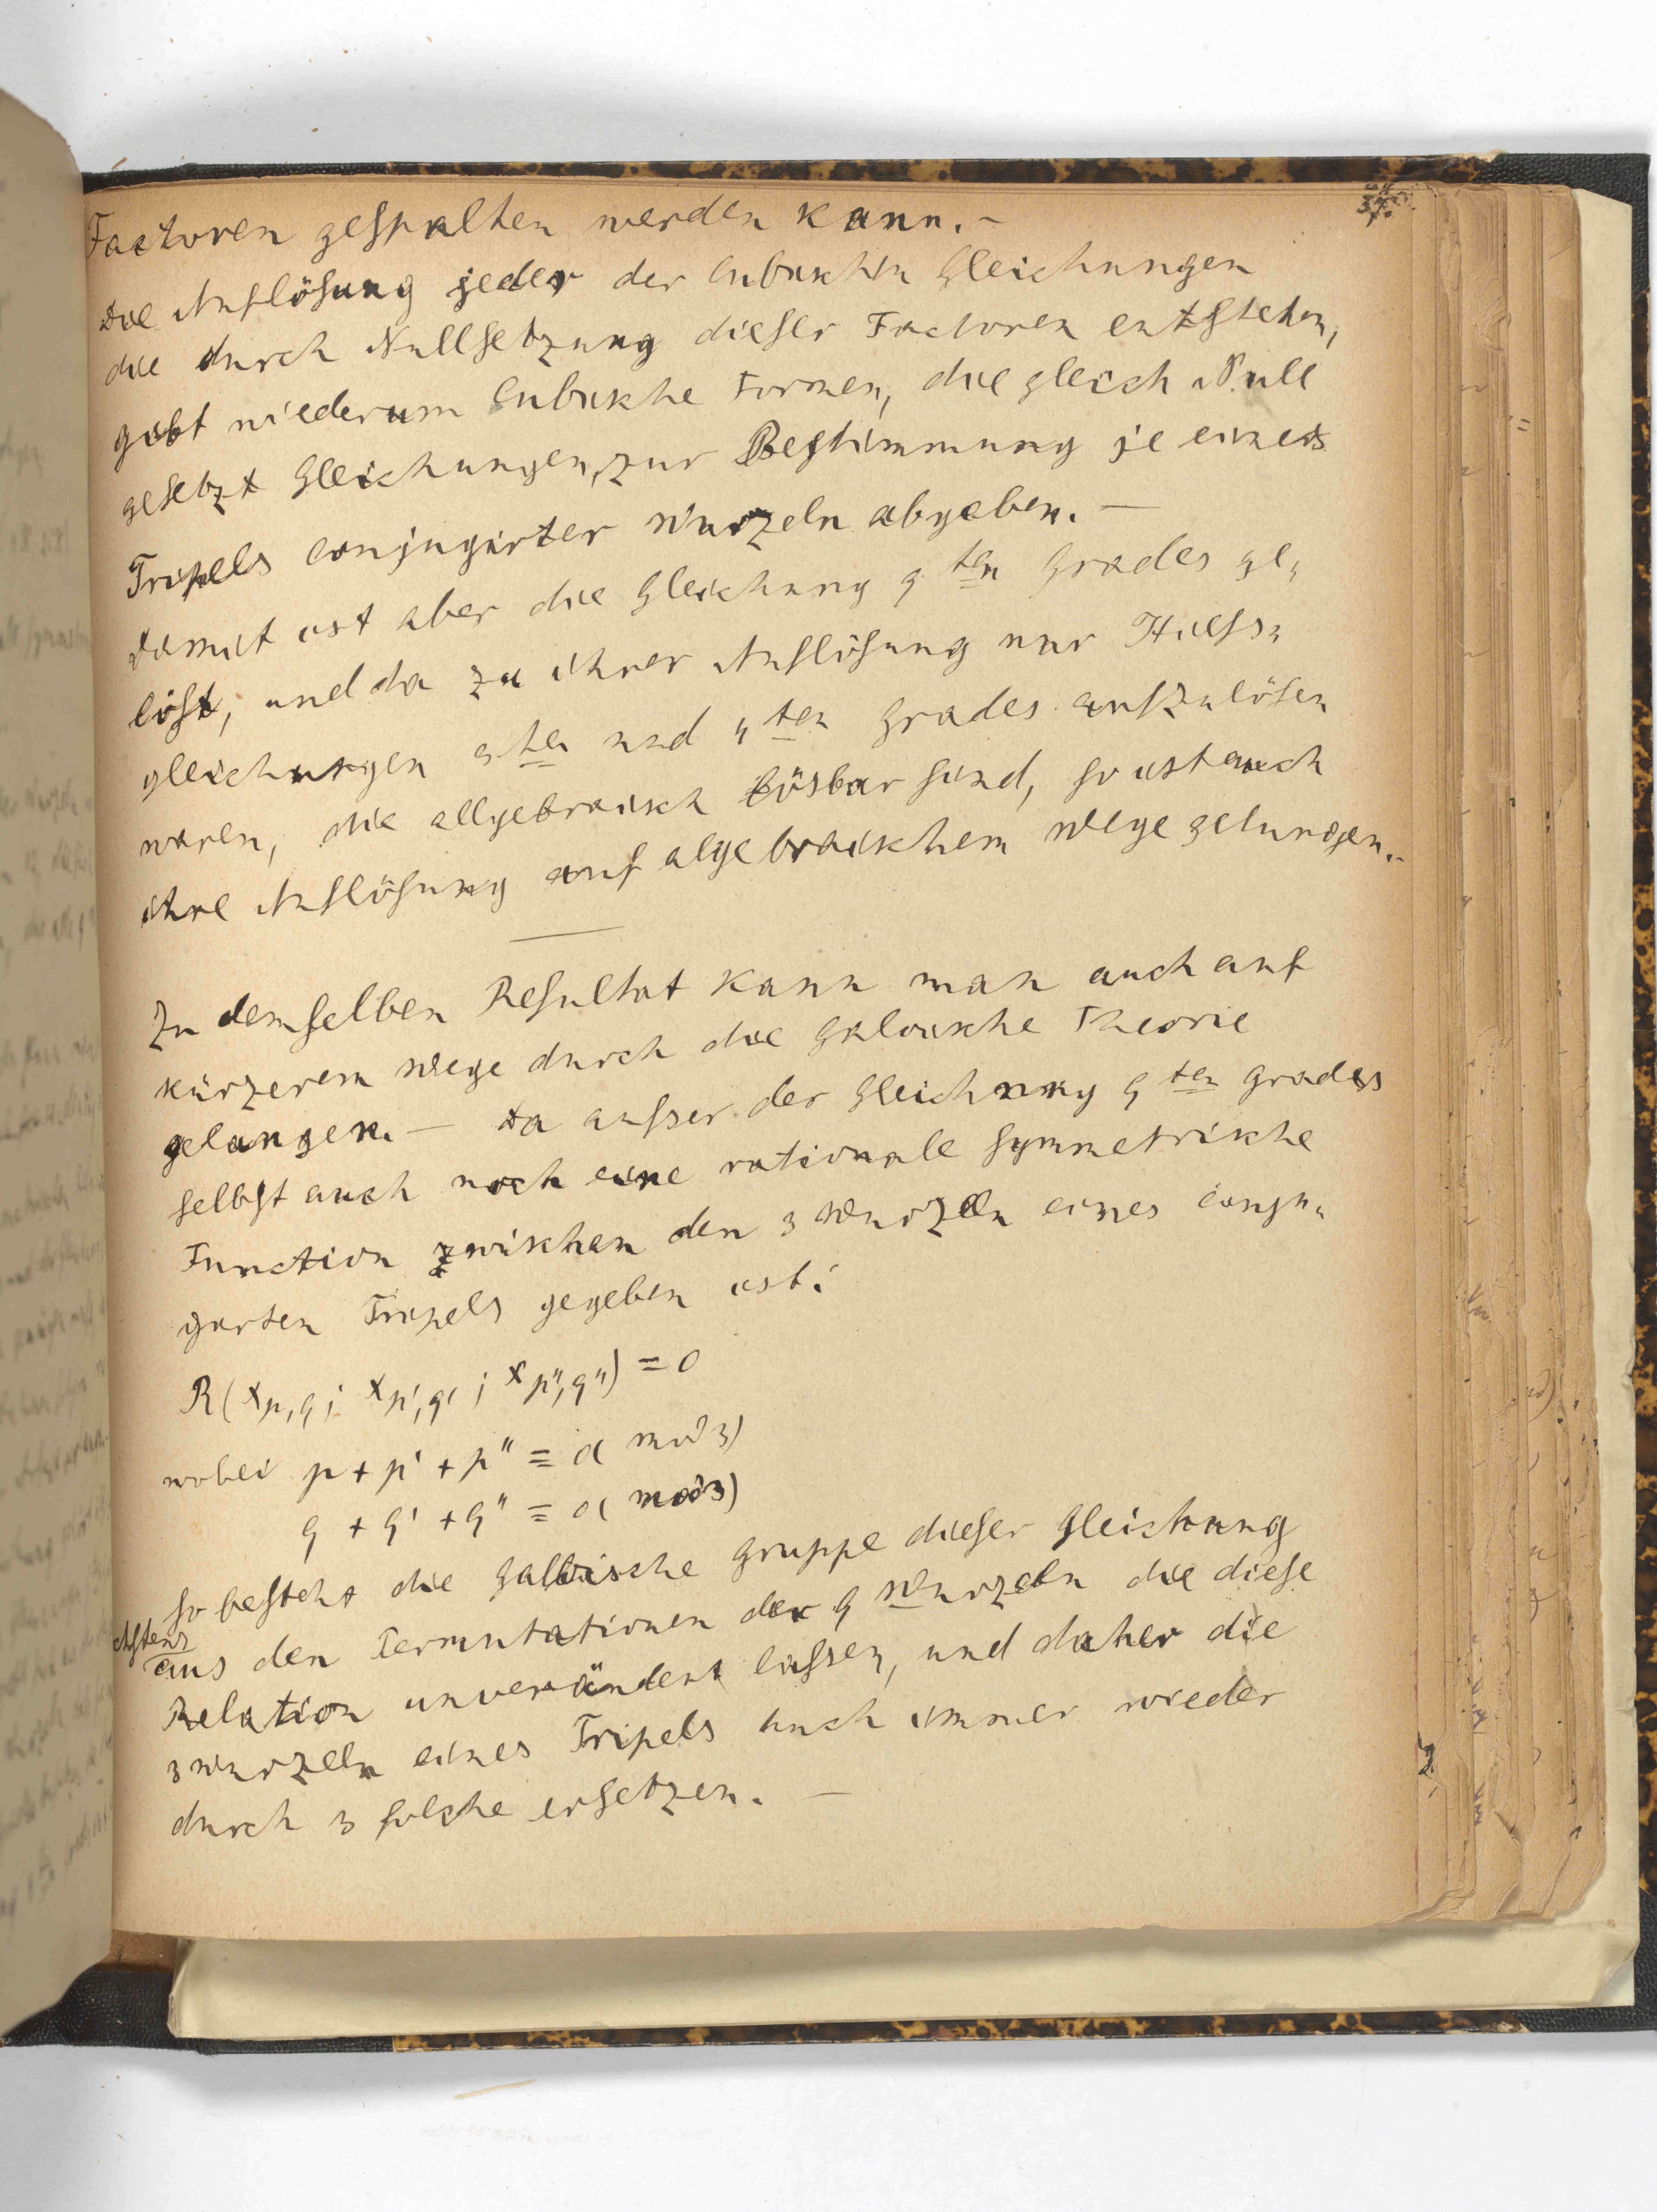 Factoren gespalten werden kann. –
Die Auflösung jeder der cubischen Gleichungen
die durch Nullsetzung dieser Factoren entstehen,
gibt wiederum cubische Formen, die gleich Null
gesetzt Gleichungen, zur Bestimmung je eines
Tripels conjugirter Wurzeln abgeben. —
Damit ist aber die Gleichung 9ten Grades ge-
löst, und da zu ihrer Auflösung nur Hilfs-
gleichungen 3ten und 4ten Grades aufzulösen
waren, die allgebraisch lösbar sind, so ist auch
ihre Auflösung auf algebraischem Wege gelungen. –
Zu demselben Resultat kann man auch auf
kürzerem Wege durch die Galoische Theorie
gelangen. — Da ausser der Gleichung 9ten Grades
selbst auch noch eine rationale symmetrische
Function zwischen den 3 Wurzeln eines conju-
girten Tripels gegeben ist:
R(x p,q ; x p',q' ; x p'',q'') = 0
wobei p + p' + p'' ≡ 0 (mod 3)
q + q' + q'' ≡ 0 (mod 3)
so besteht die Galoische Gruppe dieser Gleichung
aus den Permutationen der 9 Wurzeln die diese
Relation unverändert lassen, und daher die
3 Wurzeln eines Tripels auch immer wieder
durch 3 solche ersetzen. —